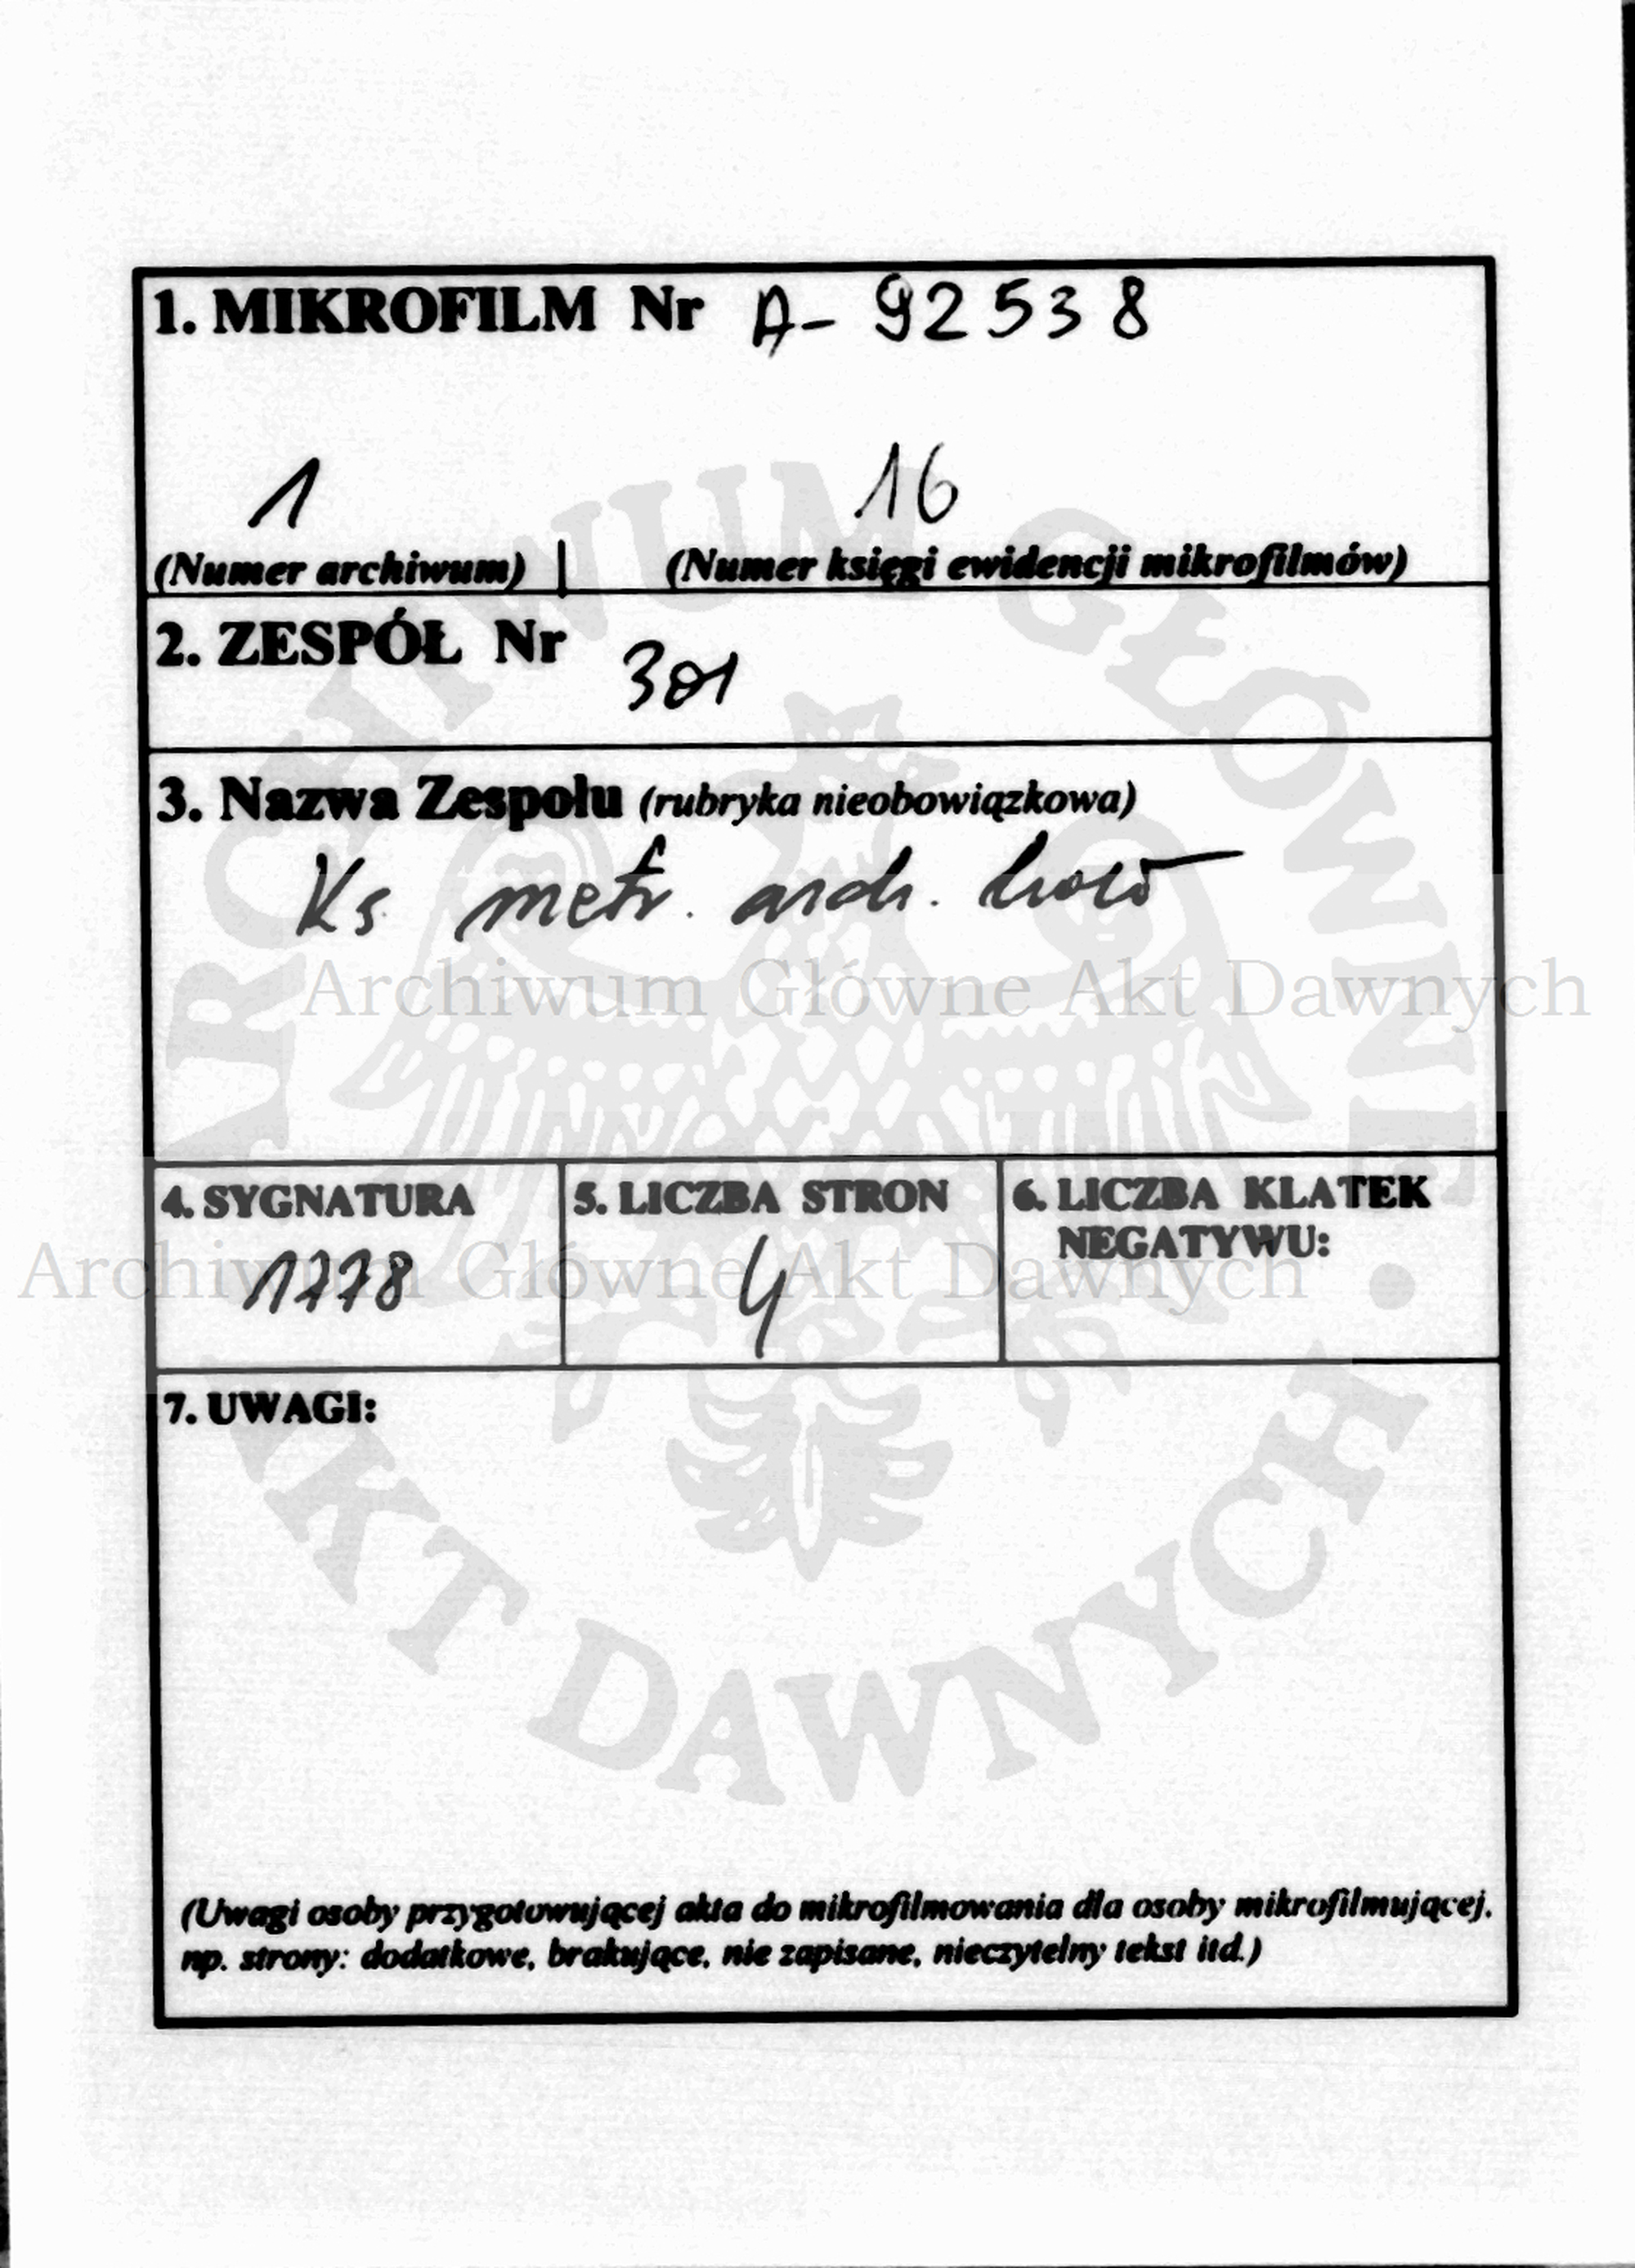 1. MIKROFILM Nr A- 92538
1 16
(Numer archiwum) | (Numer księgi ewidencji mikrofilmów)
2. ZESPÓŁ Nr 301
3. Nazwa Zespołu (rubryka nieobowiązkowa)
Ks. metr. arch.
Archiwum Główne Akt Dawnych
4. SYGNATURA
1778
5. LICZBA STRON
4
6. LICZBA KLATEK
NEGATYWU:
Archiwum Główne Akt Dawnych
7. UWAGI:
ARCHIWUM GŁÓWNE • AKT DAWNYCH •
(Uwagi osoby przygotowującej akta do mikrofilmowania dla osoby mikrofilmującej,
np. strony: dodatkowe, brakujące, nie zapisane, nieczytelny tekst itd.)